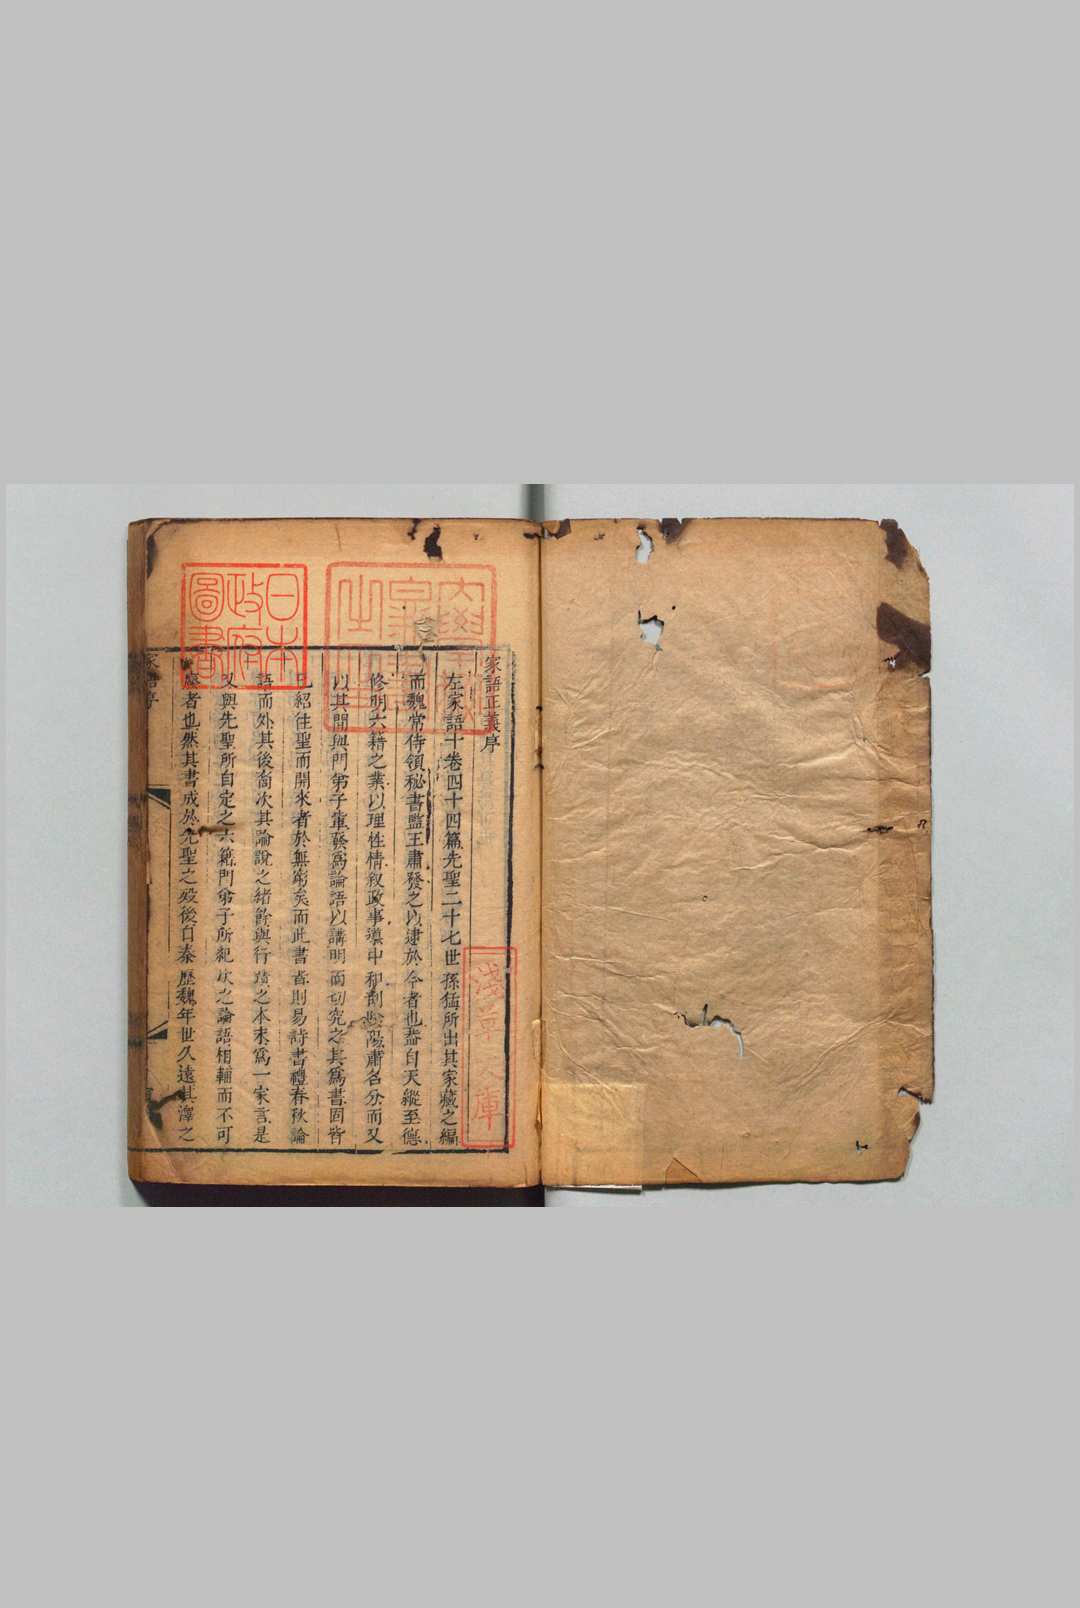 家語正義序
左家語十卷四十四篇先聖二十七世孫猛所出其家藏之編
而魏常侍領秘書監王肅發之以逮於今者也蓋自天縱至德
修明六籍之業以理性情叙政事導中和劑陰陽肅名分而又
以其間與門弟子輩發爲論語以講明而切究之其爲書固皆
紹往聖而開來者於無窮矣而此書者則易詩書禮春秋論
語而外其後啇次其論說之緒餘與行蹟之本末爲一家言是
又與先聖所自定之六籍門弟子所紀次之論語相輔而不可
廢者也然其書成於先聖之歿後自秦歷魏年世久遠其澤之
家語序
日本政府圖書
淺草文庫